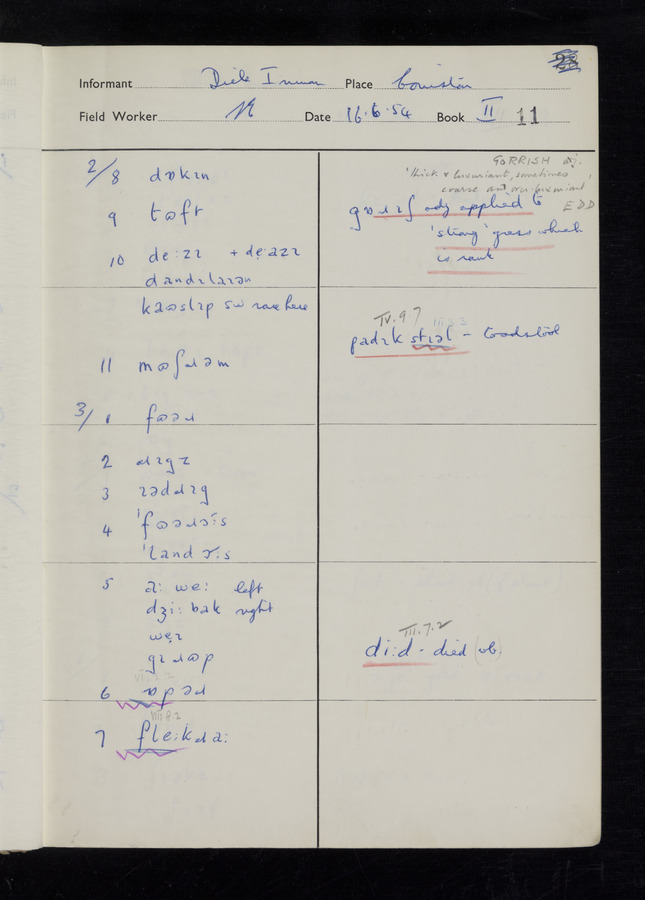 Informant Dick Inman Place Coniston
Field Worker Date 16.6.54 Book II 11
2/8 dɒkɪn
9 tɷft
10 deːzɪ + deəzɪ
dandɪlaɪən
kaɷslɪp sw rare here
11 mɷʃɹəm
3/1 fɷəɹ
2 ɹɪgz
3
4 ˈfɷəɹɔːs
ˈland ɔːs
5 aː weː left
dʒiː bak right
weɪ
gɪ ɹɷp
6 ɒpəɹ
VIII.8.2
7 fleːkɹaː
GORRISH adj.
'thick & luxuriant, sometimes
coarse and over-luxuriant'
EDD
gɒɹɪʃ adj applied to
'strong' grass which
is rank
IV. 9 7 III 3.3
padɪk stɪəl - toadstool
III.7.2
diːd - died (vb.)